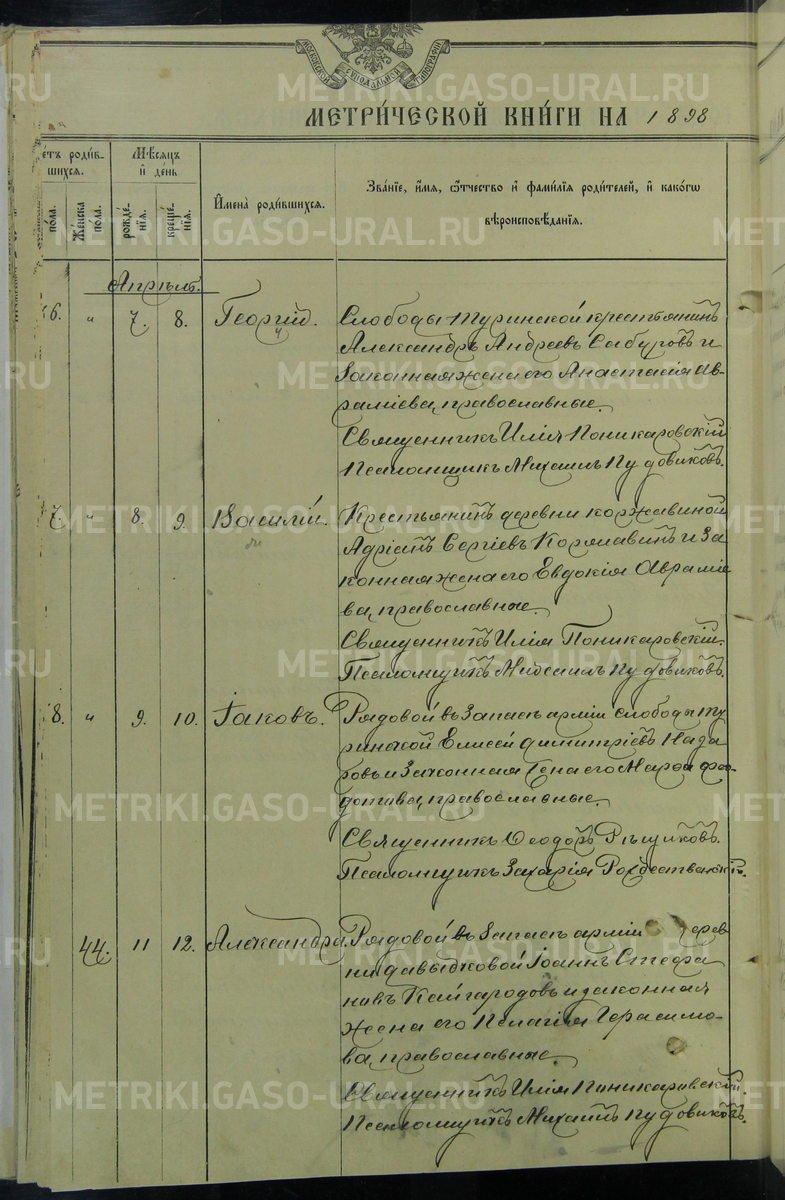 МОСКОВСКОЙ СѴНОДАЛЬНОЙ ТИПОГРАФІИ
METRIKI.GASO-URAL.RU
МЕТРИ́ЧЕСКОЙ КНИ́ГИ НА 1898
е́тъ роди́в-
шихся.
Мѣ́сяцъ
и҆ де́нь
И҆мена̀ роди́вшихся.
Зва́нїе, и҆́мѧ, ѻ҆́тчество и҆ фами́лїѧ роди́телей, и҆ како́гѡ
вѣроисповѣ́данїѧ.
по́ла.
Же́нска
по́ла.
рожде́-
нїѧ.
креще́-
нїѧ.
Апрѣль.
6. " 7. 8. Георгій. Слободы Туринской крестьянинъ
Александръ Андреевъ Сабуровъ и
законная жена его Анастасія Ав-
раміева, православные.
Священникъ Илія Поникаровскій
Псаломщикъ Михаилъ Пудовиковъ.
7. " 8. 9. Василій. Крестьянинъ деревни Коржавиной
Адріанъ Сергіевъ Коржавинъ и за
конная жена его Евдокія Авраміе
ва, православные.
Священникъ Илія Поникаровскій.
Псаломщикъ Михаилъ Пудовиковъ.
8. " 9. 10. Іаковъ. Рядовой въ запасѣ арміи слободы Ту
ринской Елисей Димитріевъ Наза
ровъ и законная жена его Марѳа Ѳео-
дотива, православные.
Священникъ Ѳеодоръ
Псаломщикъ Захарія Рождественскій.
44. 11 12. Александра. Рядовой въ запасѣ арміи дерев
ни Давыдковой Іоаннъ Стефа
новъ Кайгородовъ и законная
жена его Пелагія Герасимо-
ва, православные.
Священникъ Илія Поникаровскій.
Псаломщикъ Михаилъ Пудовиковъ.